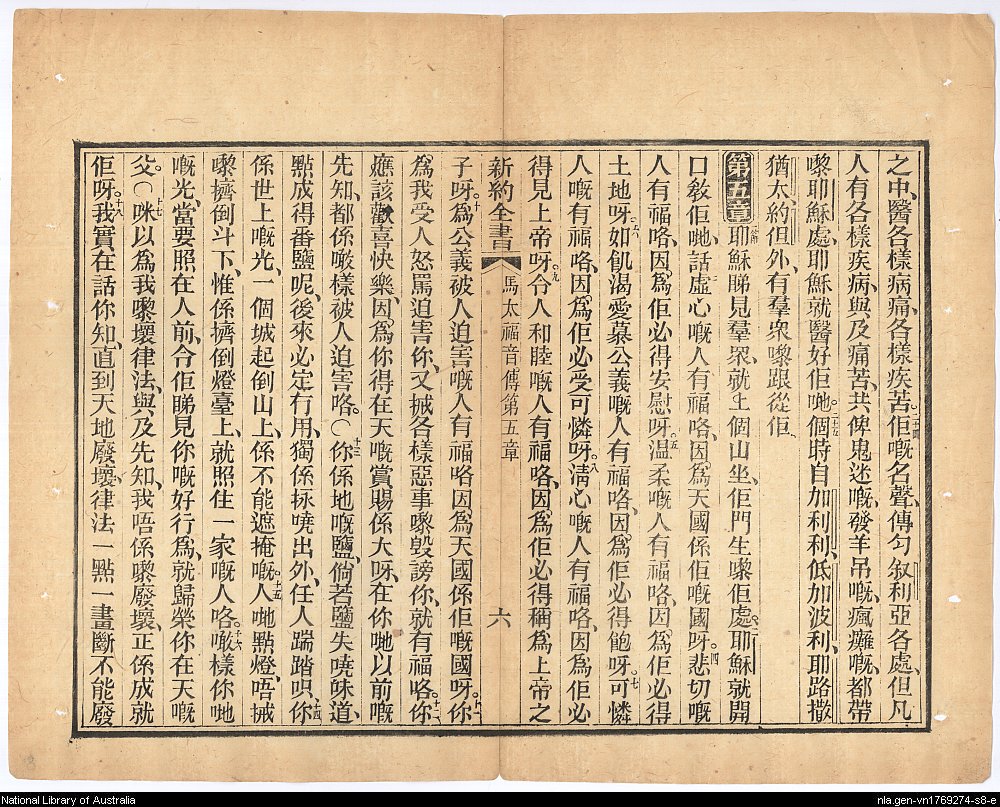 之中、醫各樣病痛、各樣疾苦。二十四佢嘅名聲、傳匀叙利亞各處、但凡
人有各樣疾病、與及痛苦、共俾鬼迷嘅、發羊吊嘅、瘋癱嘅、都帶
嚟耶穌處、耶穌就醫好佢哋。二十五個時自加利利、低加波利、耶路撒
猶太、約但外、有羣眾嚟跟從佢、
第五章 耶穌睇見羣眾、就上個山坐、佢門生嚟佢處、二耶穌就開
口敎佢哋、話、三虛心嘅人有福咯、因爲天國係佢嘅國呀。四悲切嘅
人有福咯、因爲佢必得安慰呀。五温柔嘅人有福咯、因爲佢必得
土地呀。六如飢渴愛慕公義嘅人有福咯、因爲佢必得飽呀。七可憐
人嘅有福咯、因爲佢必受可憐呀。八淸心嘅人有福咯、因爲佢必
得見上帝呀。九令人和睦嘅人有福咯、因爲佢必得稱爲上帝之
新約全書 馬太福音傳第五章 六
子呀。十爲公義被人迫害嘅人有福咯、因爲天國係佢嘅國呀。十一你
爲我受人怒罵迫害你、又揻各樣惡事嚟毀謗你、就有福咯。十二你
應該歡喜快樂、因爲你得在天嘅賞賜係大呀、在你哋以前嘅
先知、都係噉樣被人迫害咯。〇十三你係地嘅鹽、倘若鹽失嘵味道、
點成得番鹽呢、後來必定冇用、獨係掭嘵出外、任人踹踏呮、十四你
係世上嘅光、一個城起倒山上、係不能遮掩嘅。十五人哋點燈、唔揻
嚟擠倒斗下、惟係擠倒燈臺上、就照住一家嘅人咯。十六噉樣你哋
嘅光、當要照在人前、令佢睇見你嘅好行爲、就歸榮你在天嘅
父。〇十七咪以爲我嚟壞律法、與及先知、我唔係嚟廢壞、正係成就
佢呀。十八我實在話你知、直到天地廢壞、律法一點一畫、斷不能廢
National Library of Australia
nla.gen-vn1769274-s8-e